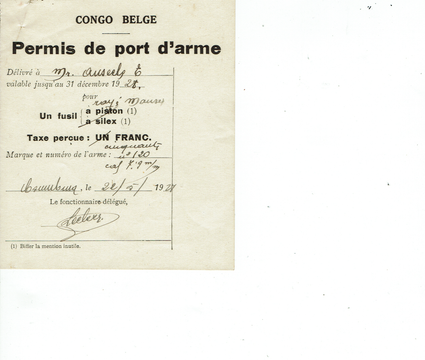 CONGO BELGE
Permis de port d'arme
Délivré à Mr. Anseele E
valable jusqu'au 31 décembre 1928.
pour
rayé Mauser
Un fusil a piston (1)
a silex (1)
Taxe perçue : UN FRANC.
cinquante
Marque et numéro de l'arme : n° 120
cal 7.9 m/m
, le 22/5/1928
Le fonctionnaire délégué,
(1) Biffer la mention inutile.